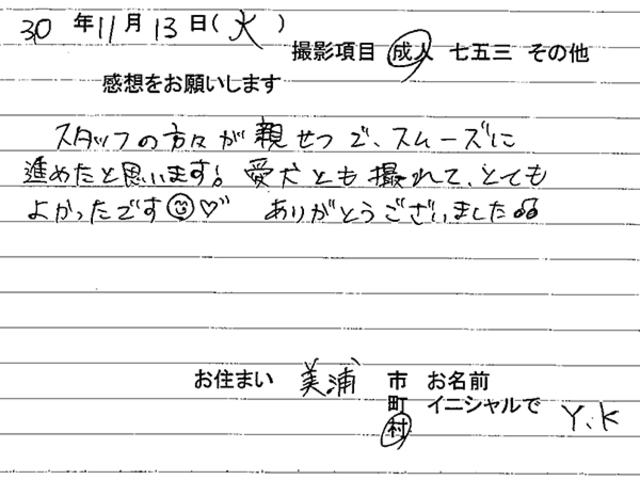 30 年 11 月 13 日 ( 火 )
撮影項目 成人 七五三 その他
感想をお願いします
スタッフの方々が親せつで、スムーズに
進めたと思います! 愛犬とも撮れて、とても
よかったです☺♡" ありがとうございました
お住まい 美浦 市 お名前
町 イニシャルで Y.K
村